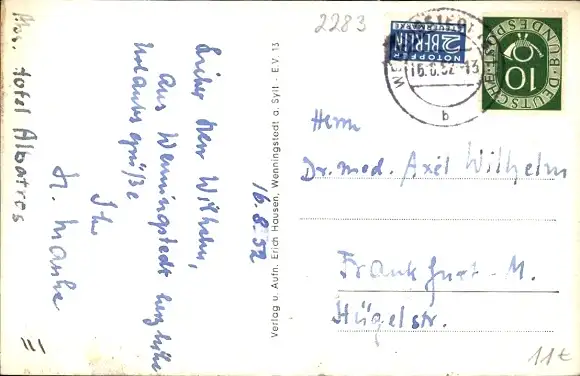 Abs. Hotel Albatros
Lieber Herr Wilhelm,
Aus Wenningstedt herzliche
Urlaubsgrüße
Ihr
16.8.52
Verlag u. Aufn. Erich Hausen, Wenningstedt a. Sylt - E.V. 13
2283
NOTOPFER
2 BERLIN
STEUERMARKE
16.8.52-13
b
DEUTSCHE BUNDESPOST
10
Herrn
Dr. med. Axel Wilhelm
Frankfurt-M.
Hügelstr.
11€